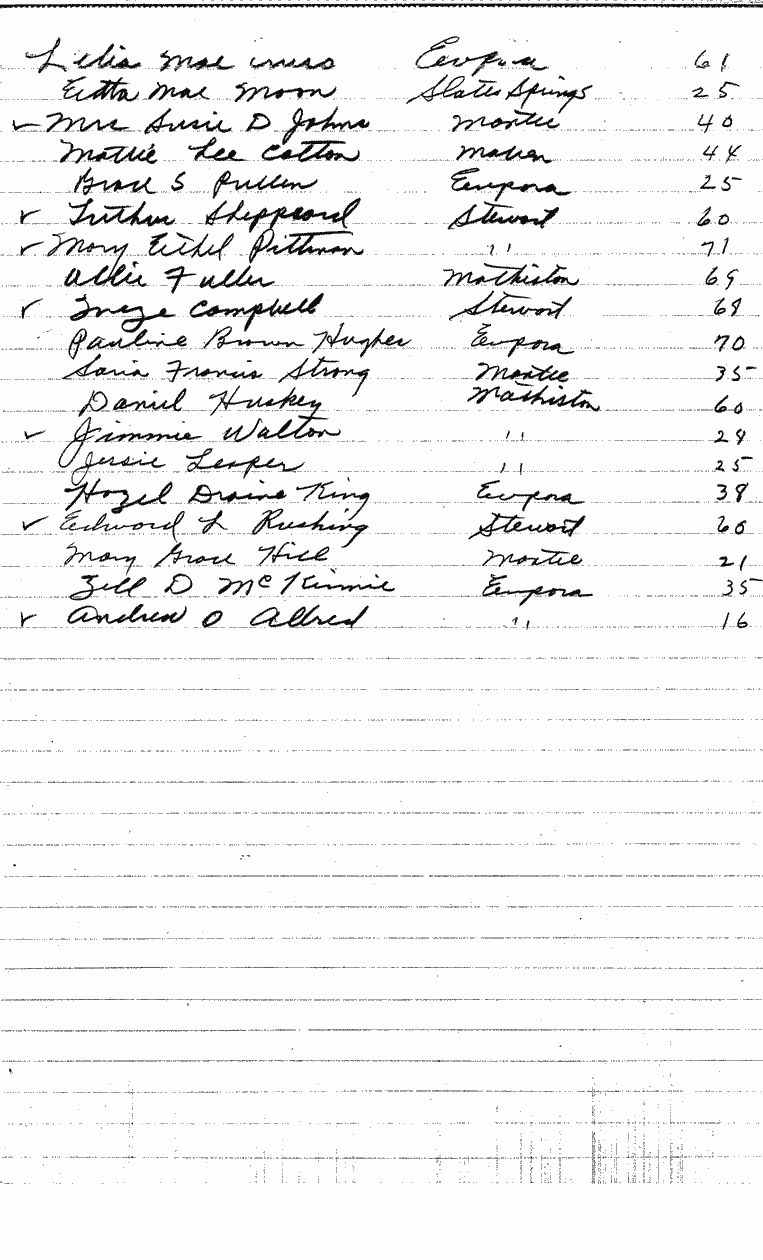 Lelia Mae Eupora 61
Etta Mae Moon Slate Springs 25
✓ Mrs Susie D Johns Mantee 40
Mattie Lee Cotton Maben 44
Grace S Pullen Eupora 25
✓ Luther Sheppeard Stewart 60
✓ Mary Ethel Pittman " 71
Allie Fuller Mathiston 69
✓ Ineze Campbell Stewart 68
Pauline Brown Hughes Eupora 70
Saria Francis Strong Mantee 35
Daniel Huskey Mathiston 60
✓ Jimmie Walton " 28
Jessie Lesper " 25
Hazel Draine King Eupora 38
✓ Edward L Rushing Stewart 60
Mary Grace Hill Mantee 21
Zell D McKinnie Eupora 35
✓ Andrew O Allred " 16